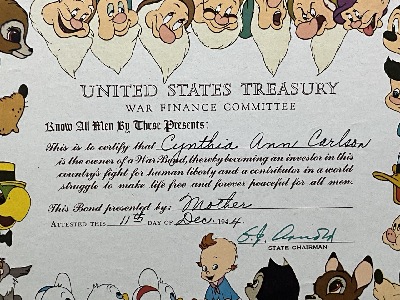 UNITED STATES TREASURY
WAR FINANCE COMMITTEE
Know All Men By These Presents:
This is to certify that Cynthia Ann Carlson
is the owner of a War Bond, thereby becoming an investor in this
country's fight for human liberty and a contributor in a world
struggle to make life free and forever peaceful for all men.
This Bond presented by: Mother
ATTESTED THIS 11th DAY OF Dec. 1944
Arnold
STATE CHAIRMAN